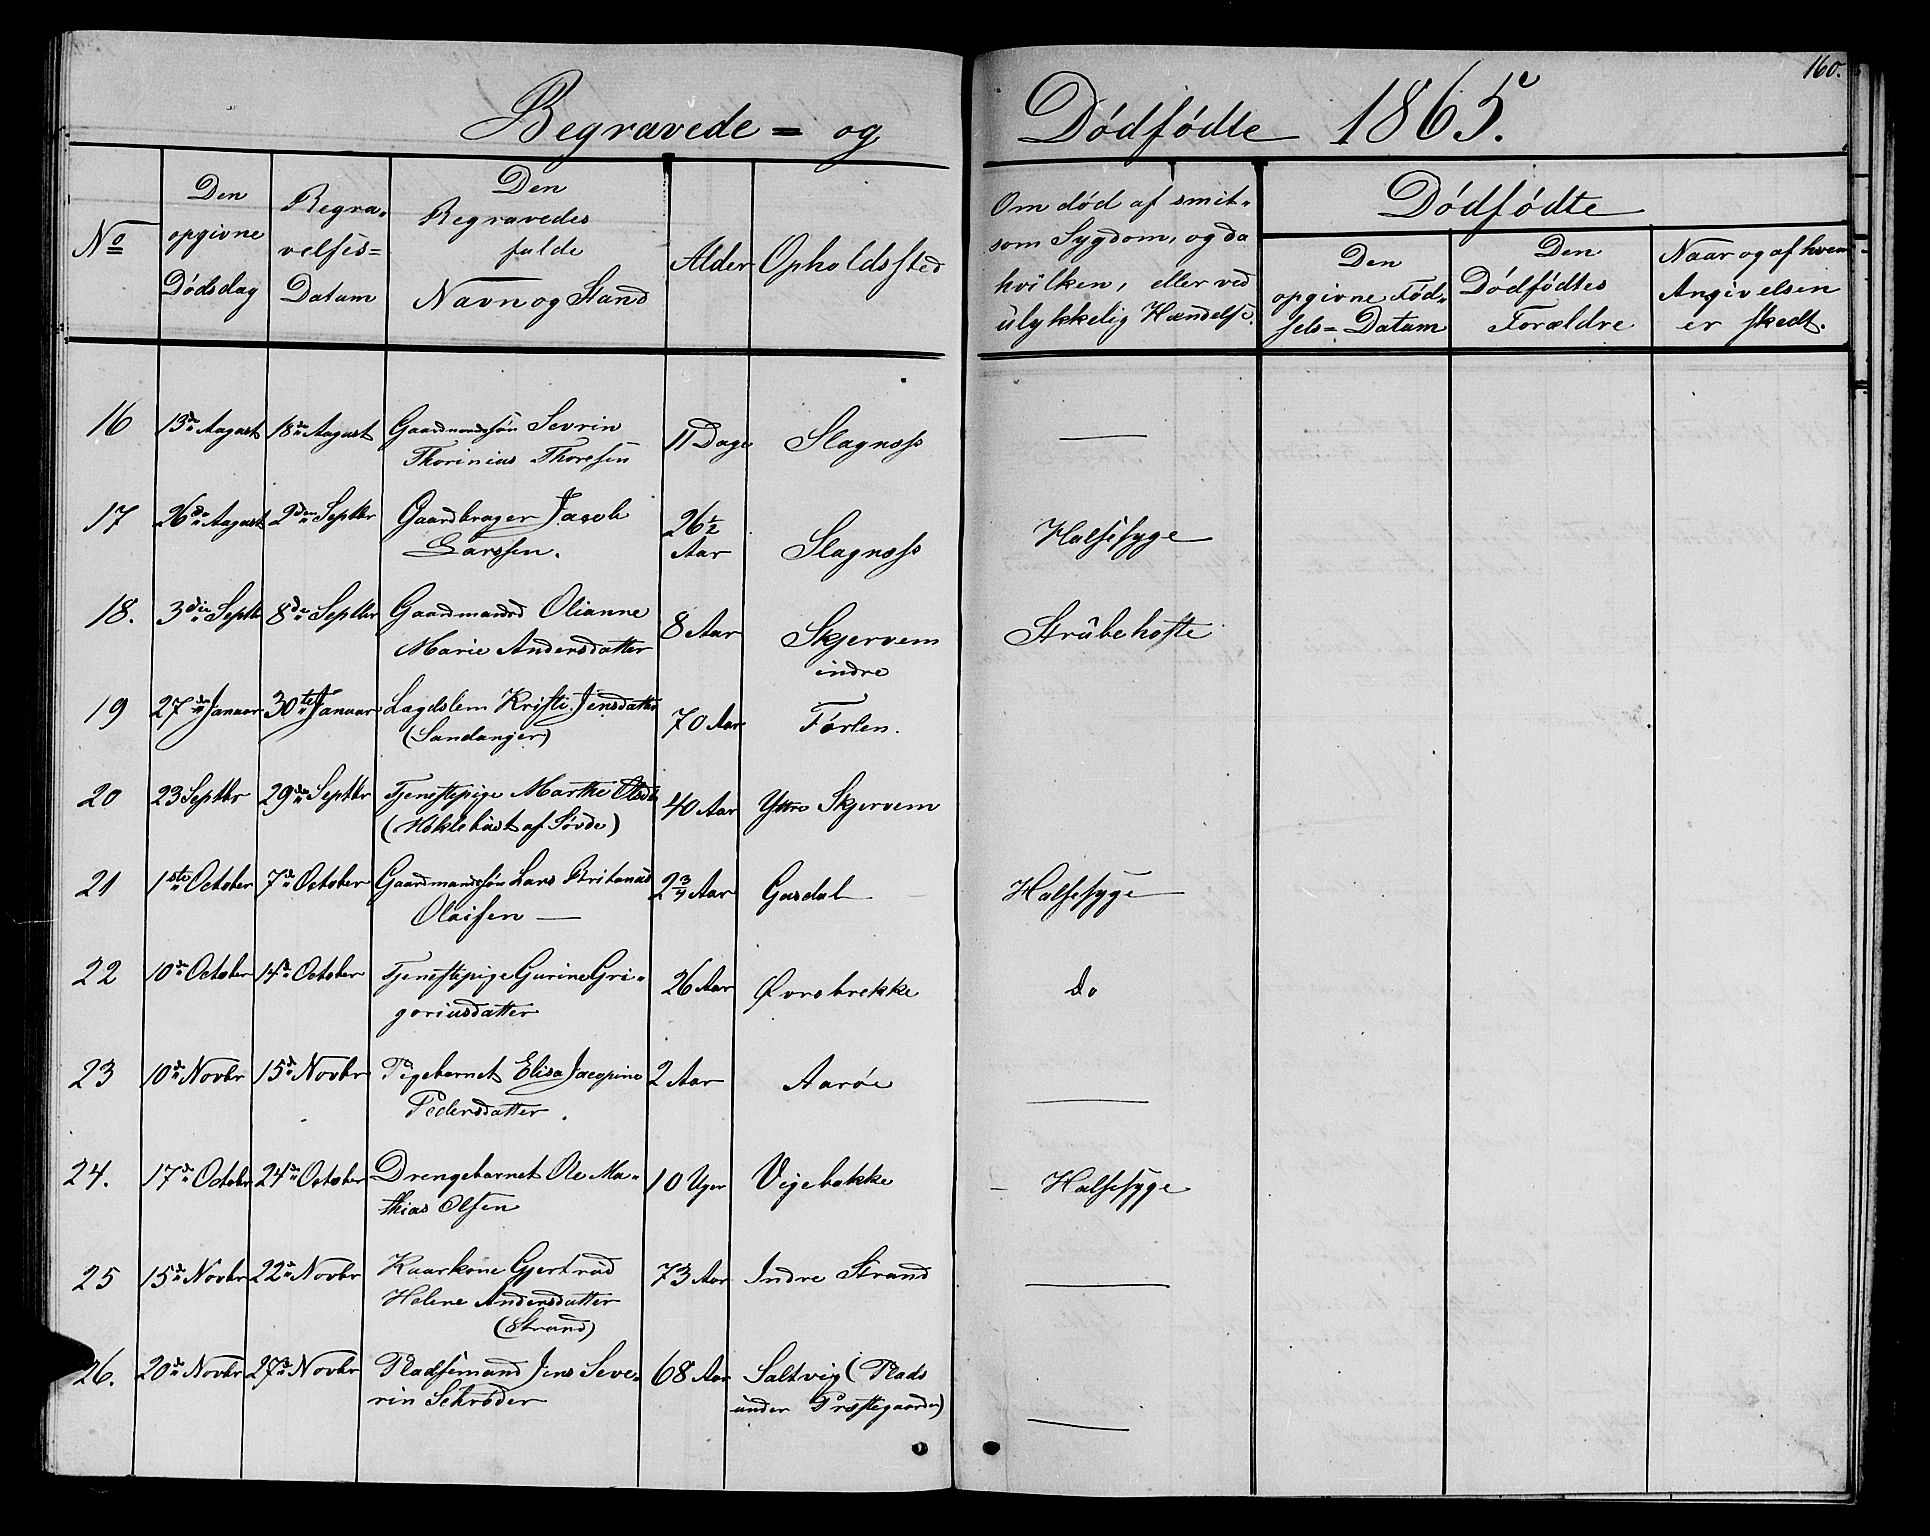 160.
Begravede = og Dödfödte 1865.
No
Den opgivne Dödsdag
Begra- velses= Datum
Den Begravedes fulde Navn og Stand
Alder
Opholdssted
Om död af smit- som Sygdom, og da hvilken, eller ved ulykkelig Hændelse.
Dödfödte
Den opgivne Föd- sels= Datum
Den Dödfödtes Forældre
Naar og af hvem Angivelsen er skedt.
16 13de August 18de August Gaardmandssön Sevrin Thorinius Thoresen 11 Dage Slagnæss —
17 26de August 2den Septbr Gaardbruger Jacob Larssen. 26 1/2 Aar Slagnæss Halsesyge
18. 3die Septbr 8de Septbr Gaardmandsd Olianne Marie Andersdatter 8 Aar Skjervem indre Strubehoste
19 27de Januar 30te Januar Lægdslem Kristi Jensdatter (Sandanger) 70 Aar Förlen.
20 23 Septbr 29de Septbr Tjenestepige Marthe Olsd (Köklebust af Sövde) 40 Aar Yttre Skjervem
21 1ste October 7de October Gaardmandssön Lars Britanus Olaisen — 2 3/4 Aar Gusdal Halsesyge
22 10de October 14de October Tjenestepige Gurine Gri- goriusdatter 26 Aar Øvrebrekke do
23 10de Novbr 15de Novbr Pigebarnet Elisa Jacopine Pedersdatter. 2 Aar Aaröe —
24. 17de October 24de October Drengebarnet Ole Ma- thias Olsen 10 Uger Vigebakke Halsesyge
25 15de Novbr 22de Novbr Kaarkone Gjertrud Helene Andersdatter (Strand) 73 Aar Indre Strand —
26. 20de Novbr 27de Novbr Pladsemand Jens Seve- rin Schröder 68 Aar Saltvig (Plads under Præstegaarden) —